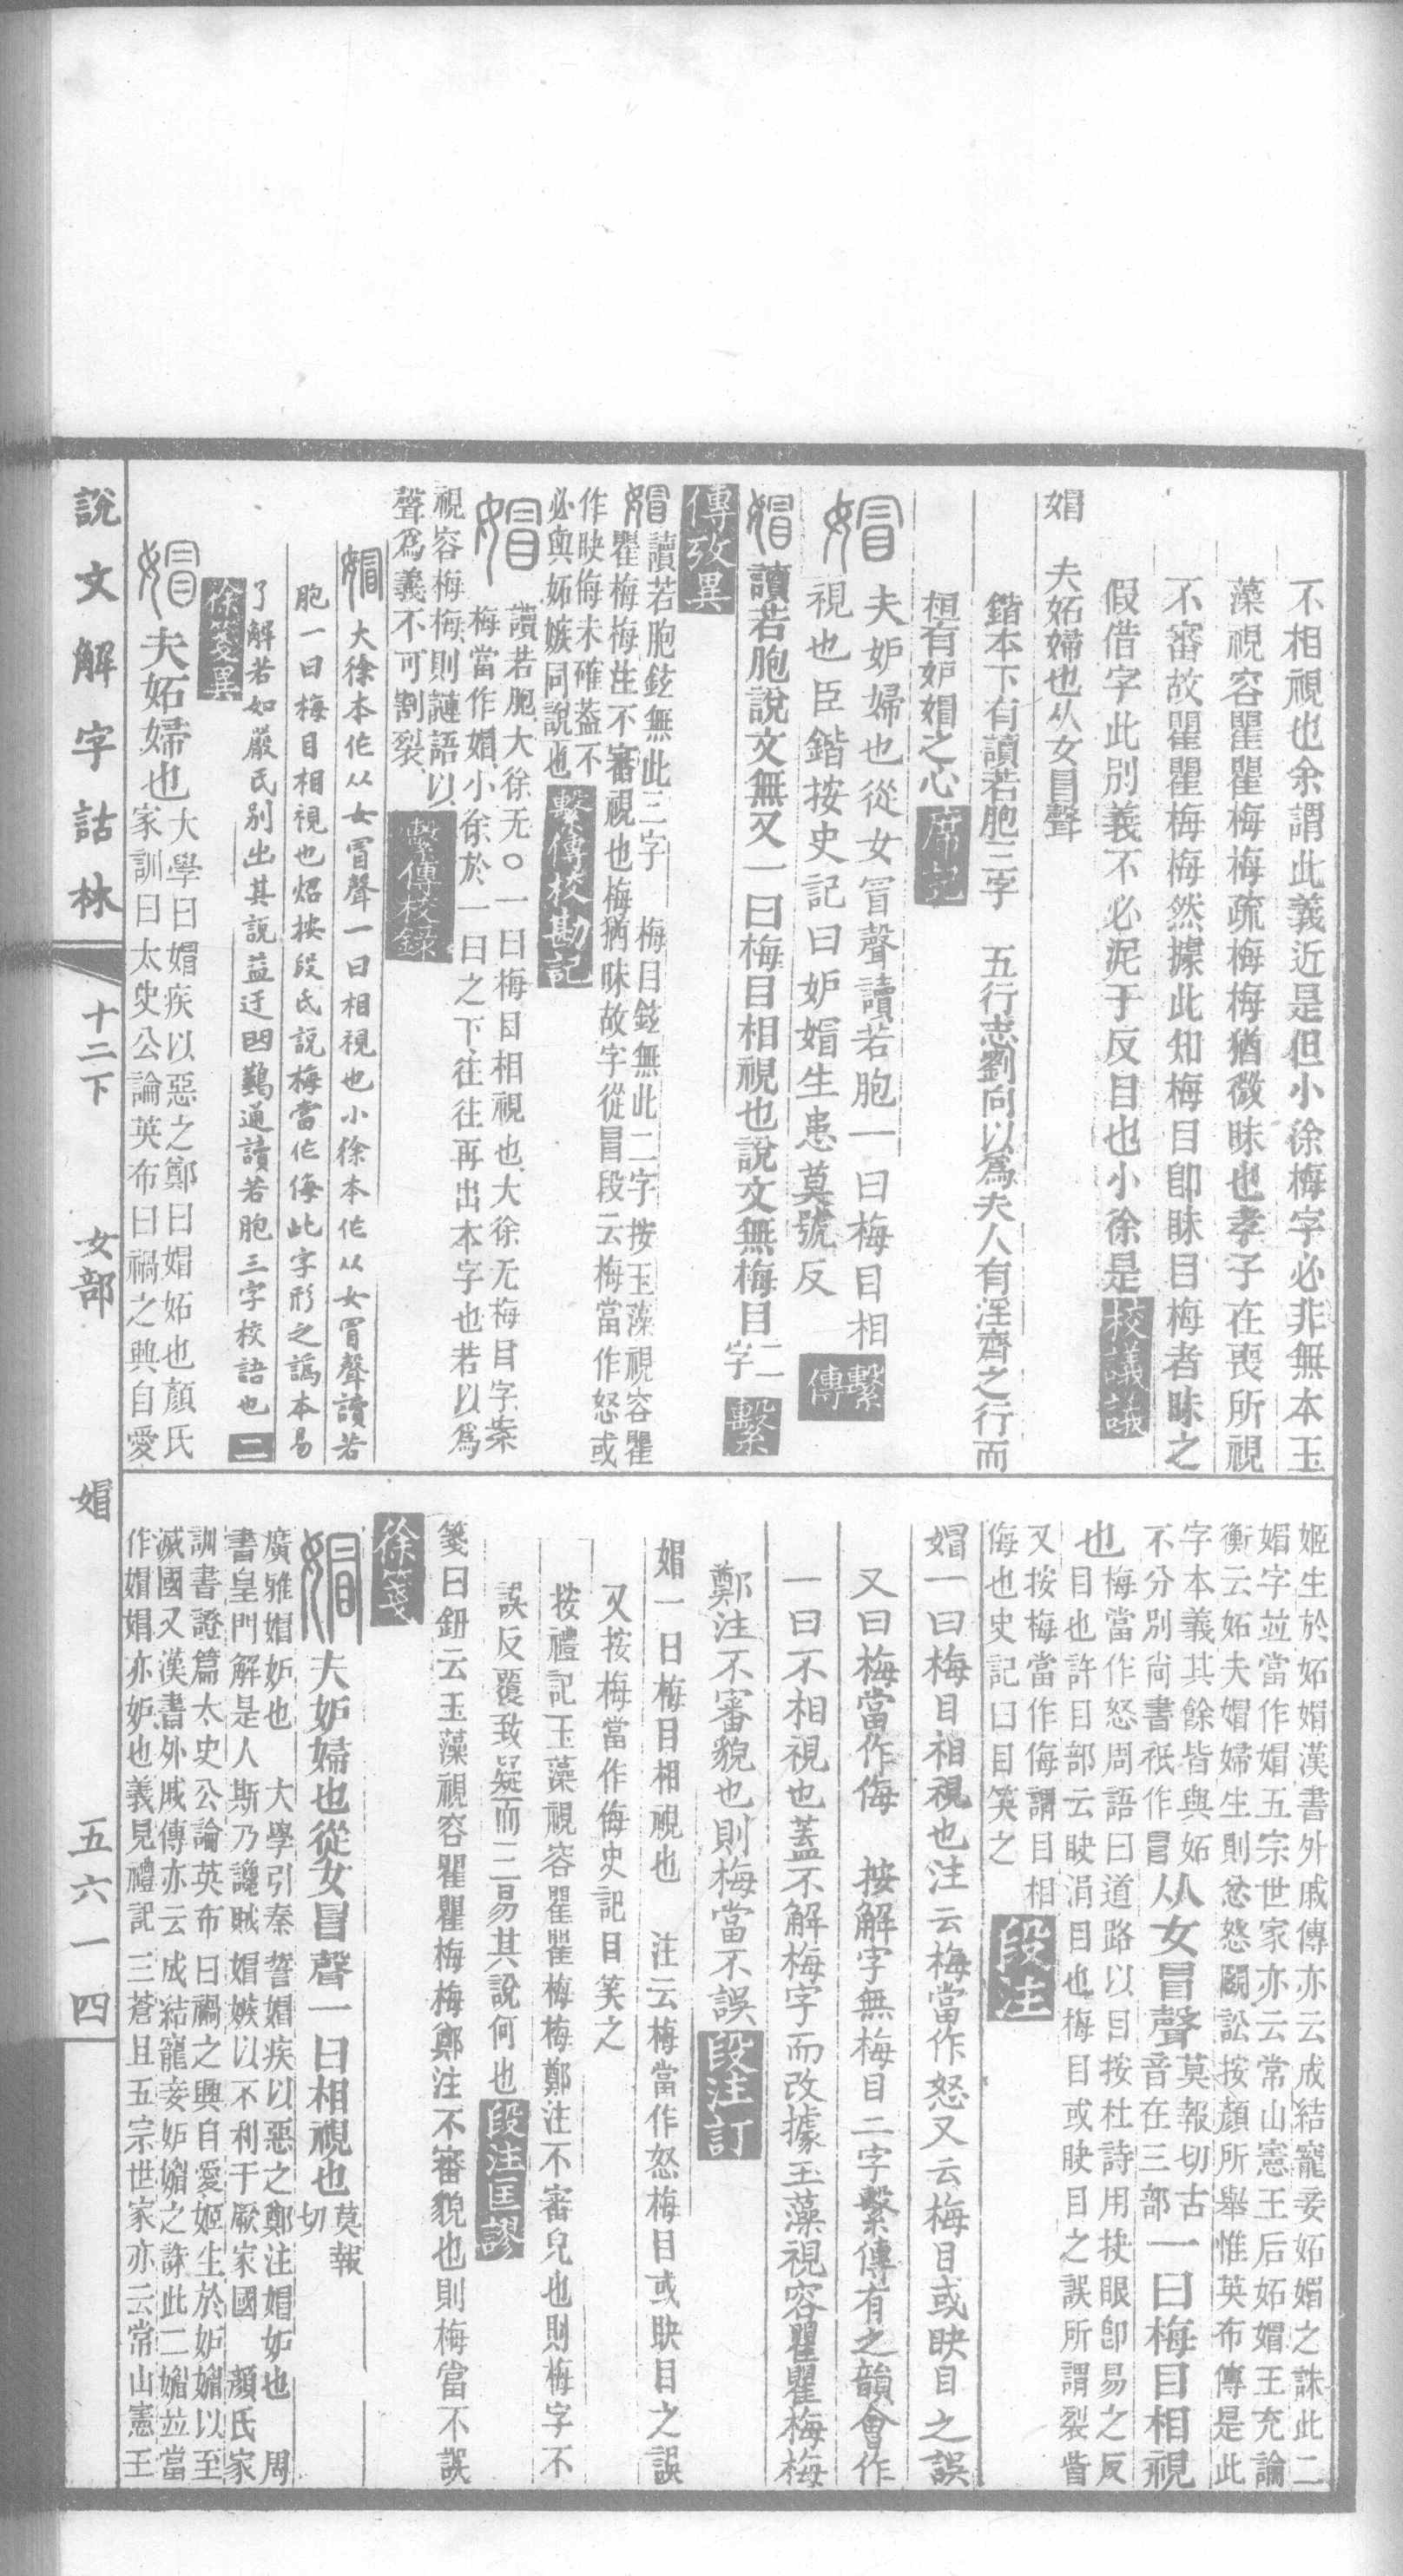 不相視也余謂此義近是但小徐梅字必非無本玉
藻視容瞿瞿梅梅疏梅梅猶微昧也孝子在喪所視
不審故瞿瞿梅梅然據此知梅目卽眛目梅者眛之
假借字此別義不必泥于反目也小徐是校議議
媢　夫妬婦也从女冒聲
鍇本下有讀若胞三字　五行志劉向以爲夫人有淫齊之行而
桓有妒媢之心席記
媢夫妒婦也從女冒聲讀若胞一曰梅目相
視也臣鍇按史記曰妒媢生患莫號反繫傳
媢讀若胞說文無又一曰梅目相視也說文無梅目二字繫
傳攷異
媢讀若胞鉉無此三字　梅目鉉無此二字按玉藻視容瞿
瞿梅梅注不審視也梅猶昧故字從冒段云梅當作怒或
作眣侮未確葢不
必與妬嫉同說也繫傳校勘記
媢讀若胞大徐无○一曰梅目相視也大徐无梅目字案
梅當作媢小徐於一曰之下往往再出本字也若以爲
視容梅梅則謰語以
聲爲義不可割裂繫傳校錄
媢大徐本作从女冒聲一曰相視也小徐本作从女冒聲讀若
胞一曰梅目相視也炤按段氏說梅當作侮此字形之譌本易
了解若如嚴氏別出其說益迂曲鷄通讀若胞三字校語也二
徐箋異
媢夫妬婦也大學曰媢疾以惡之鄭曰媢妬也顏氏
家訓曰太史公論英布曰禍之興自愛
姬生於妬媢漢書外戚傳亦云成結寵妾妬媢之誅此二
媢字竝當作媢五宗世家亦云常山憲王后妬媢王充論
衡云妬夫媢婦生則忿怒鬭訟按顏所舉惟英布傳是此
字本義其餘皆與妬
不分別尚書衹作冒从女冒聲莫報切古音在三部一曰梅目相視
也梅當作怒周語曰道路以目按杜詩用抉眼卽易之反
目也許目部云睊涓目也梅目或眣目之誤所謂裂眥
又按梅當作侮謂目相
侮也史記曰目笑之段注
媢一曰梅目相視也注云梅當作怒又云梅目或眣目之誤
又曰梅當作侮　按解字無梅目二字繫傳有之韻會作
一曰不相視也蓋不解梅字而改據玉藻視容瞿瞿梅梅
鄭注不審貌也則梅當不誤段注訂
媢一曰梅目相視也　注云梅當作怒梅目或眣目之誤
又按梅當作侮史記目笑之
按禮記玉藻視容瞿瞿梅梅鄭注不審皃也則梅字不
誤反覆致疑而三易其說何也段注匡謬
箋曰鈕云玉藻視容瞿瞿梅梅鄭注不審貌也則梅當不誤
徐箋
媢夫妒婦也從女冒聲一曰相視也莫報切
廣雅媢妒也　大學引秦誓媢疾以惡之鄭注媢妒也　周
書皇門解是人斯乃讒賊媢嫉以不利于厥家國　顏氏家
訓書證篇太史公論英布曰禍之興自愛姬生於妒媢以至
滅國又漢書外戚傳亦云成結寵妾妒媢之誅此二媢竝當
作媢媢亦妒也義見禮記三蒼且五宗世家亦云常山憲王
說文解字詁林　十二下　女部　媢　五六一四